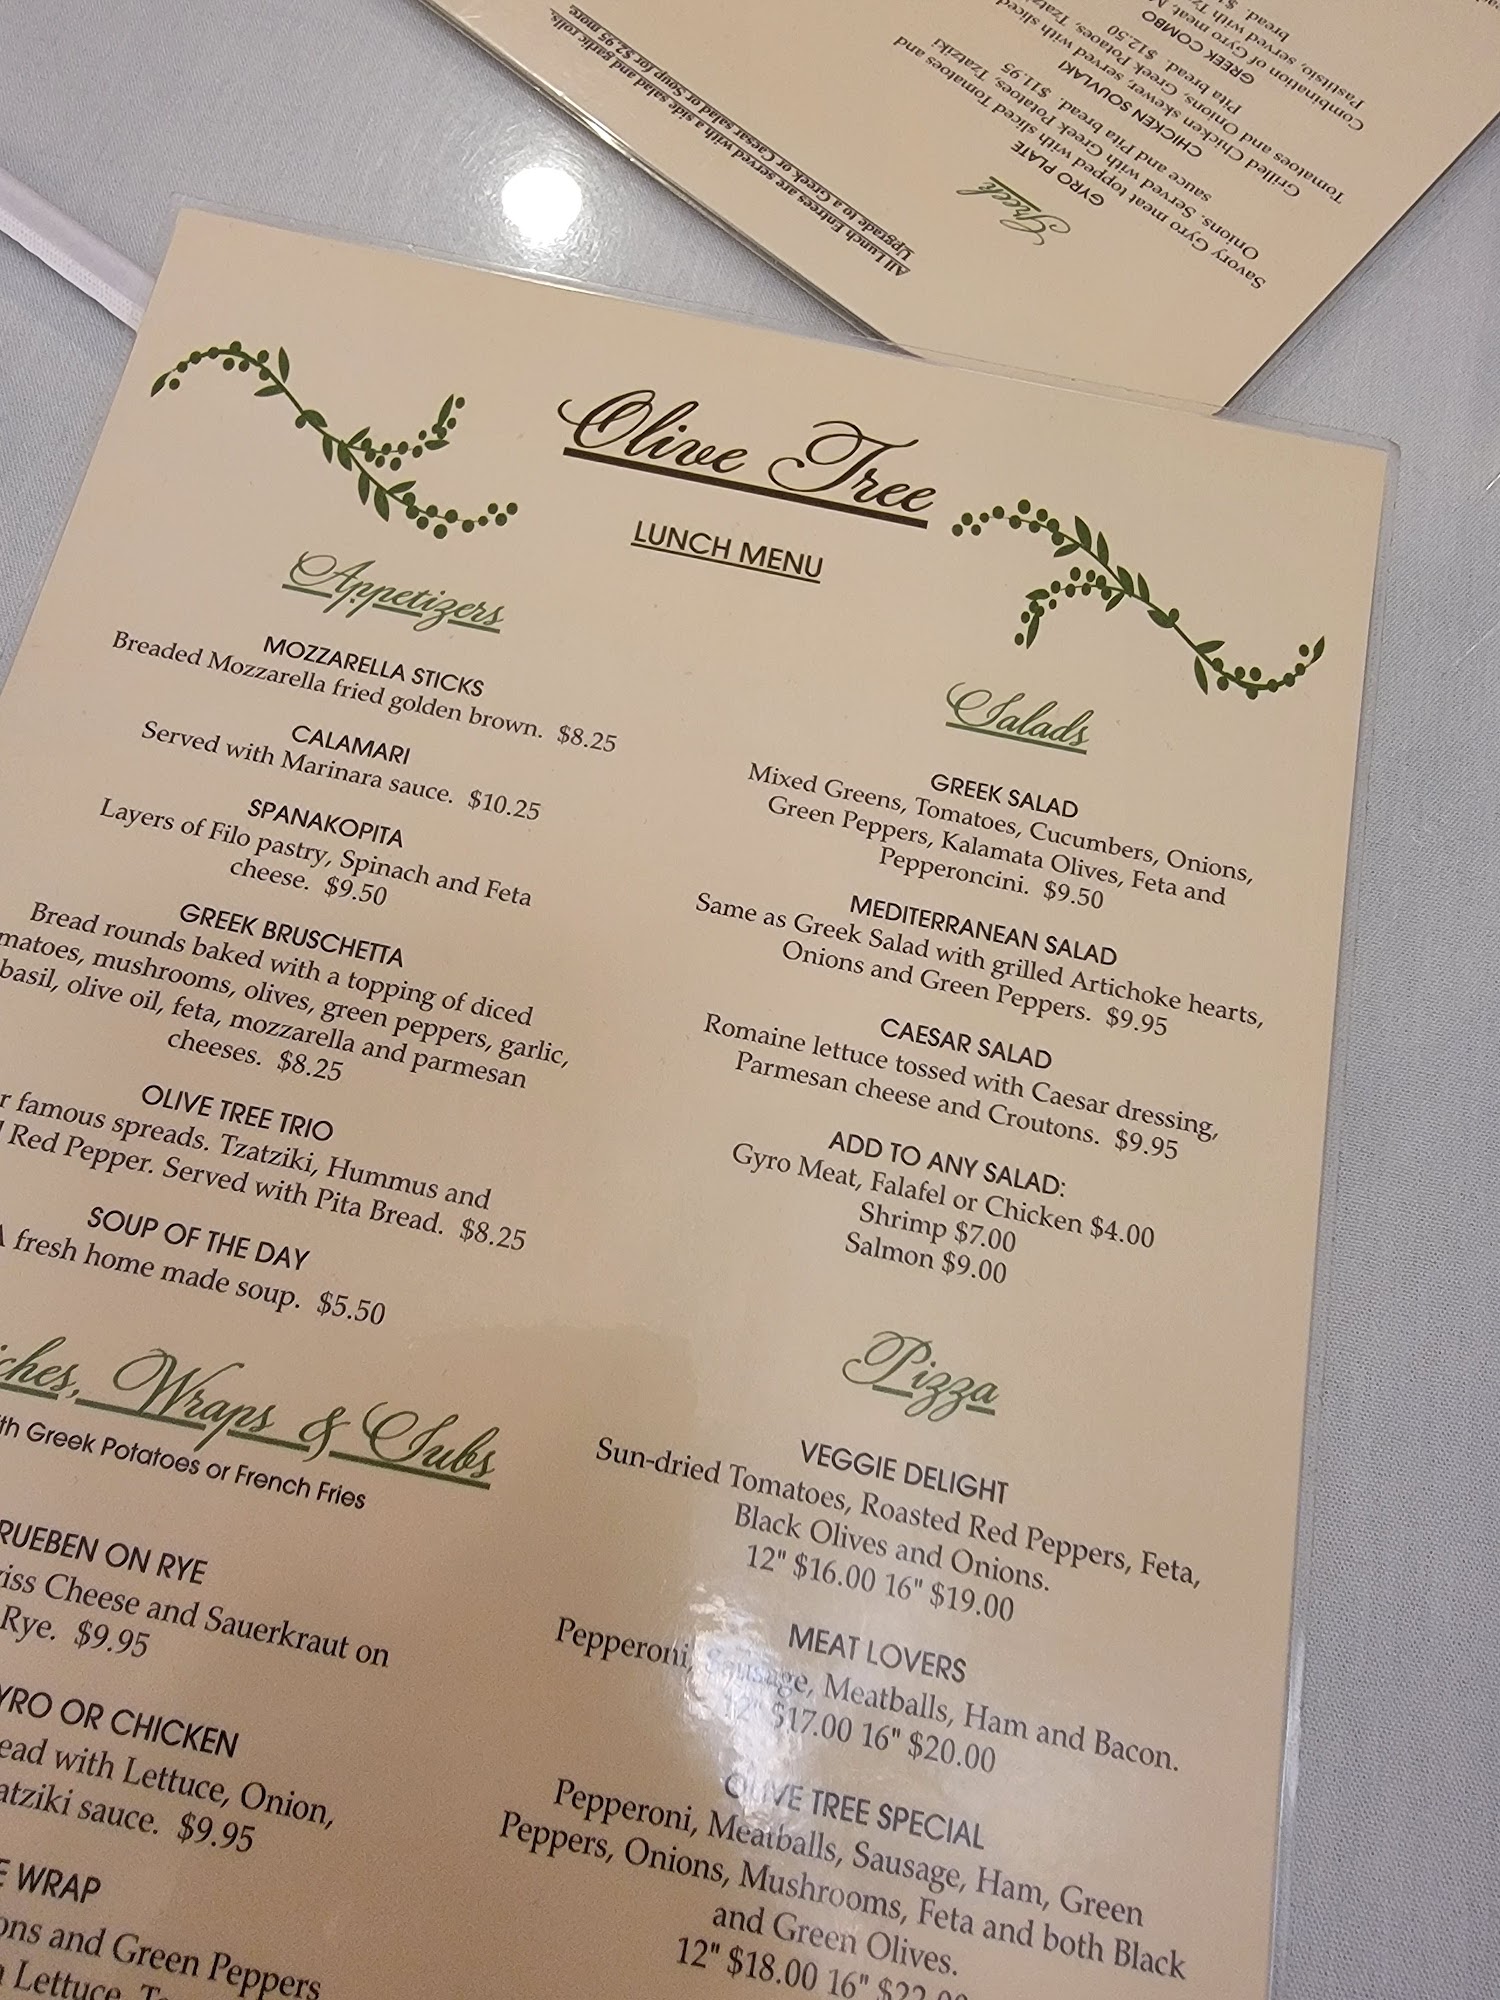 Olive Tree
LUNCH MENU
Appetizers
MOZZARELLA STICKS
Breaded Mozzarella fried golden brown. $8.25
CALAMARI
Served with Marinara sauce. $10.25
SPANAKOPITA
Layers of Filo pastry, Spinach and Feta
cheese. $9.50
GREEK BRUSCHETTA
Bread rounds baked with a topping of diced
mushrooms, olives, green peppers, garlic,
basil, olive oil, feta, mozzarella and parmesan
cheeses. $8.25
OLIVE TREE TRIO
famous spreads. Tzatziki, Hummus and
Red Pepper. Served with Pita Bread. $8.25
SOUP OF THE DAY
A fresh home made soup. $5.50
Wraps & Subs
Greek Potatoes or French Fries
RUEBEN ON RYE
Cheese and Sauerkraut on
Rye. $9.95
OR CHICKEN
with Lettuce, Onion,
sauce. $9.95
WRAP
and Green Peppers
Lettuce,
Salads
GREEK SALAD
Mixed Greens, Tomatoes, Cucumbers, Onions,
Green Peppers, Kalamata Olives, Feta and
Pepperoncini. $9.50
MEDITERRANEAN SALAD
Same as Greek Salad with grilled Artichoke hearts,
Onions and Green Peppers. $9.95
CAESAR SALAD
Romaine lettuce tossed with Caesar dressing,
Parmesan cheese and Croutons. $9.95
ADD TO ANY SALAD:
Gyro Meat, Falafel or Chicken $4.00
Shrimp $7.00
Salmon $9.00
Pizza
VEGGIE DELIGHT
Sun-dried Tomatoes, Roasted Red Peppers, Feta,
Black Olives and Onions.
12" $16.00 16" $19.00
MEAT LOVERS
Pepperoni, Sausage, Meatballs, Ham and Bacon.
12" $17.00 16" $20.00
OLIVE TREE SPECIAL
Pepperoni, Meatballs, Sausage, Ham, Green
Peppers, Onions, Mushrooms, Feta and both Black
and Green Olives.
12" $18.00 16" $22.00
All Lunch Entrees are served with a side salad and garlic rolls.
Upgrade to a Greek or Caesar salad or Soup for $2.95 more.
Greek
GYRO PLATE
Savory Gyro meat topped with sliced Tomatoes and
Onions. Served with Greek Potatoes, Tzatziki
sauce and Pita bread. $11.95
CHICKEN SOUVLAKI
Grilled Chicken skewer, served with sliced
Tomatoes and Onions, Greek Potatoes,
Pita bread. $12.50
GREEK COMBO
Combination of Gyro meat,
Pastitsio, served with
bread.